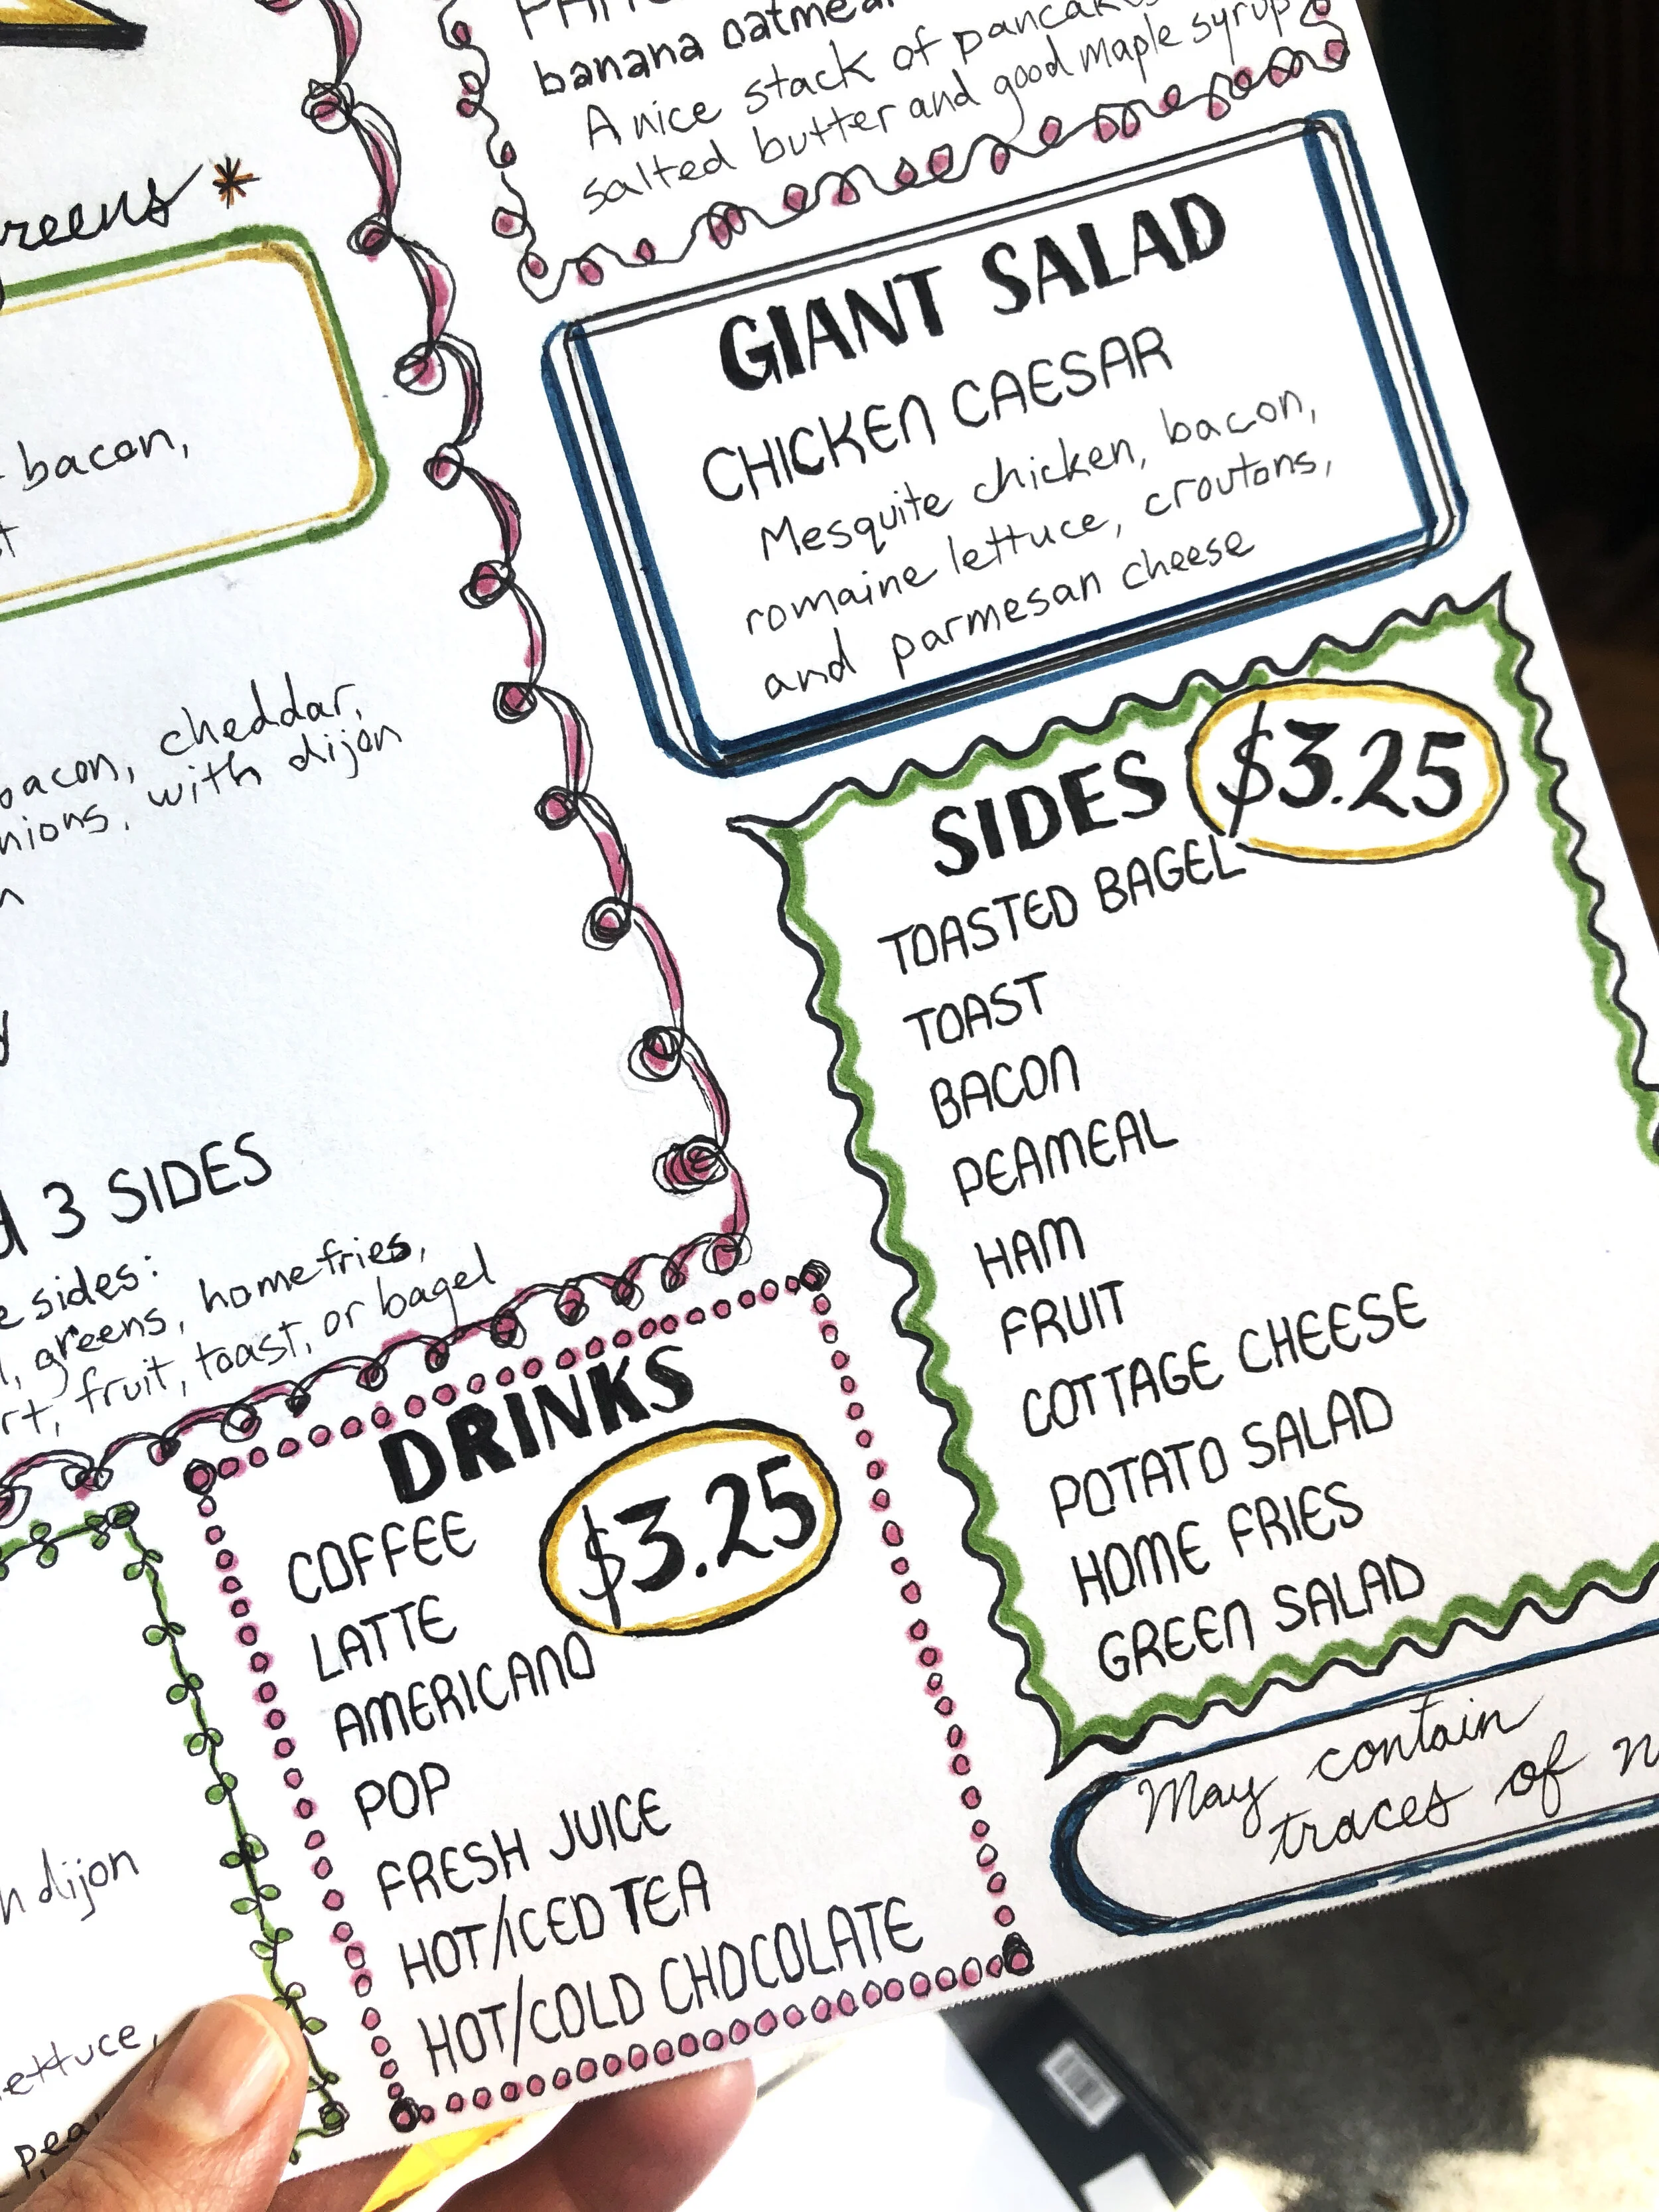 banana oatmeal
A nice stack of pancakes
salted butter and good maple syrup
GIANT SALAD
CHICKEN CAESAR
Mesquite chicken, bacon,
romaine lettuce, croutons,
and parmesan cheese
SIDES $3.25
TOASTED BAGEL
TOAST
BACON
PEAMEAL
HAM
FRUIT
COTTAGE CHEESE
POTATO SALAD
HOME FRIES
GREEN SALAD
May contain
traces of
bacon,
bacon, cheddar,
with dijon
3 SIDES
sides:
greens, homefries,
fruit, toast, or bagel
DRINKS
$3.25
COFFEE
LATTE
AMERICANO
POP
FRESH JUICE
HOT/ICED TEA
HOT/COLD CHOCOLATE
dijon